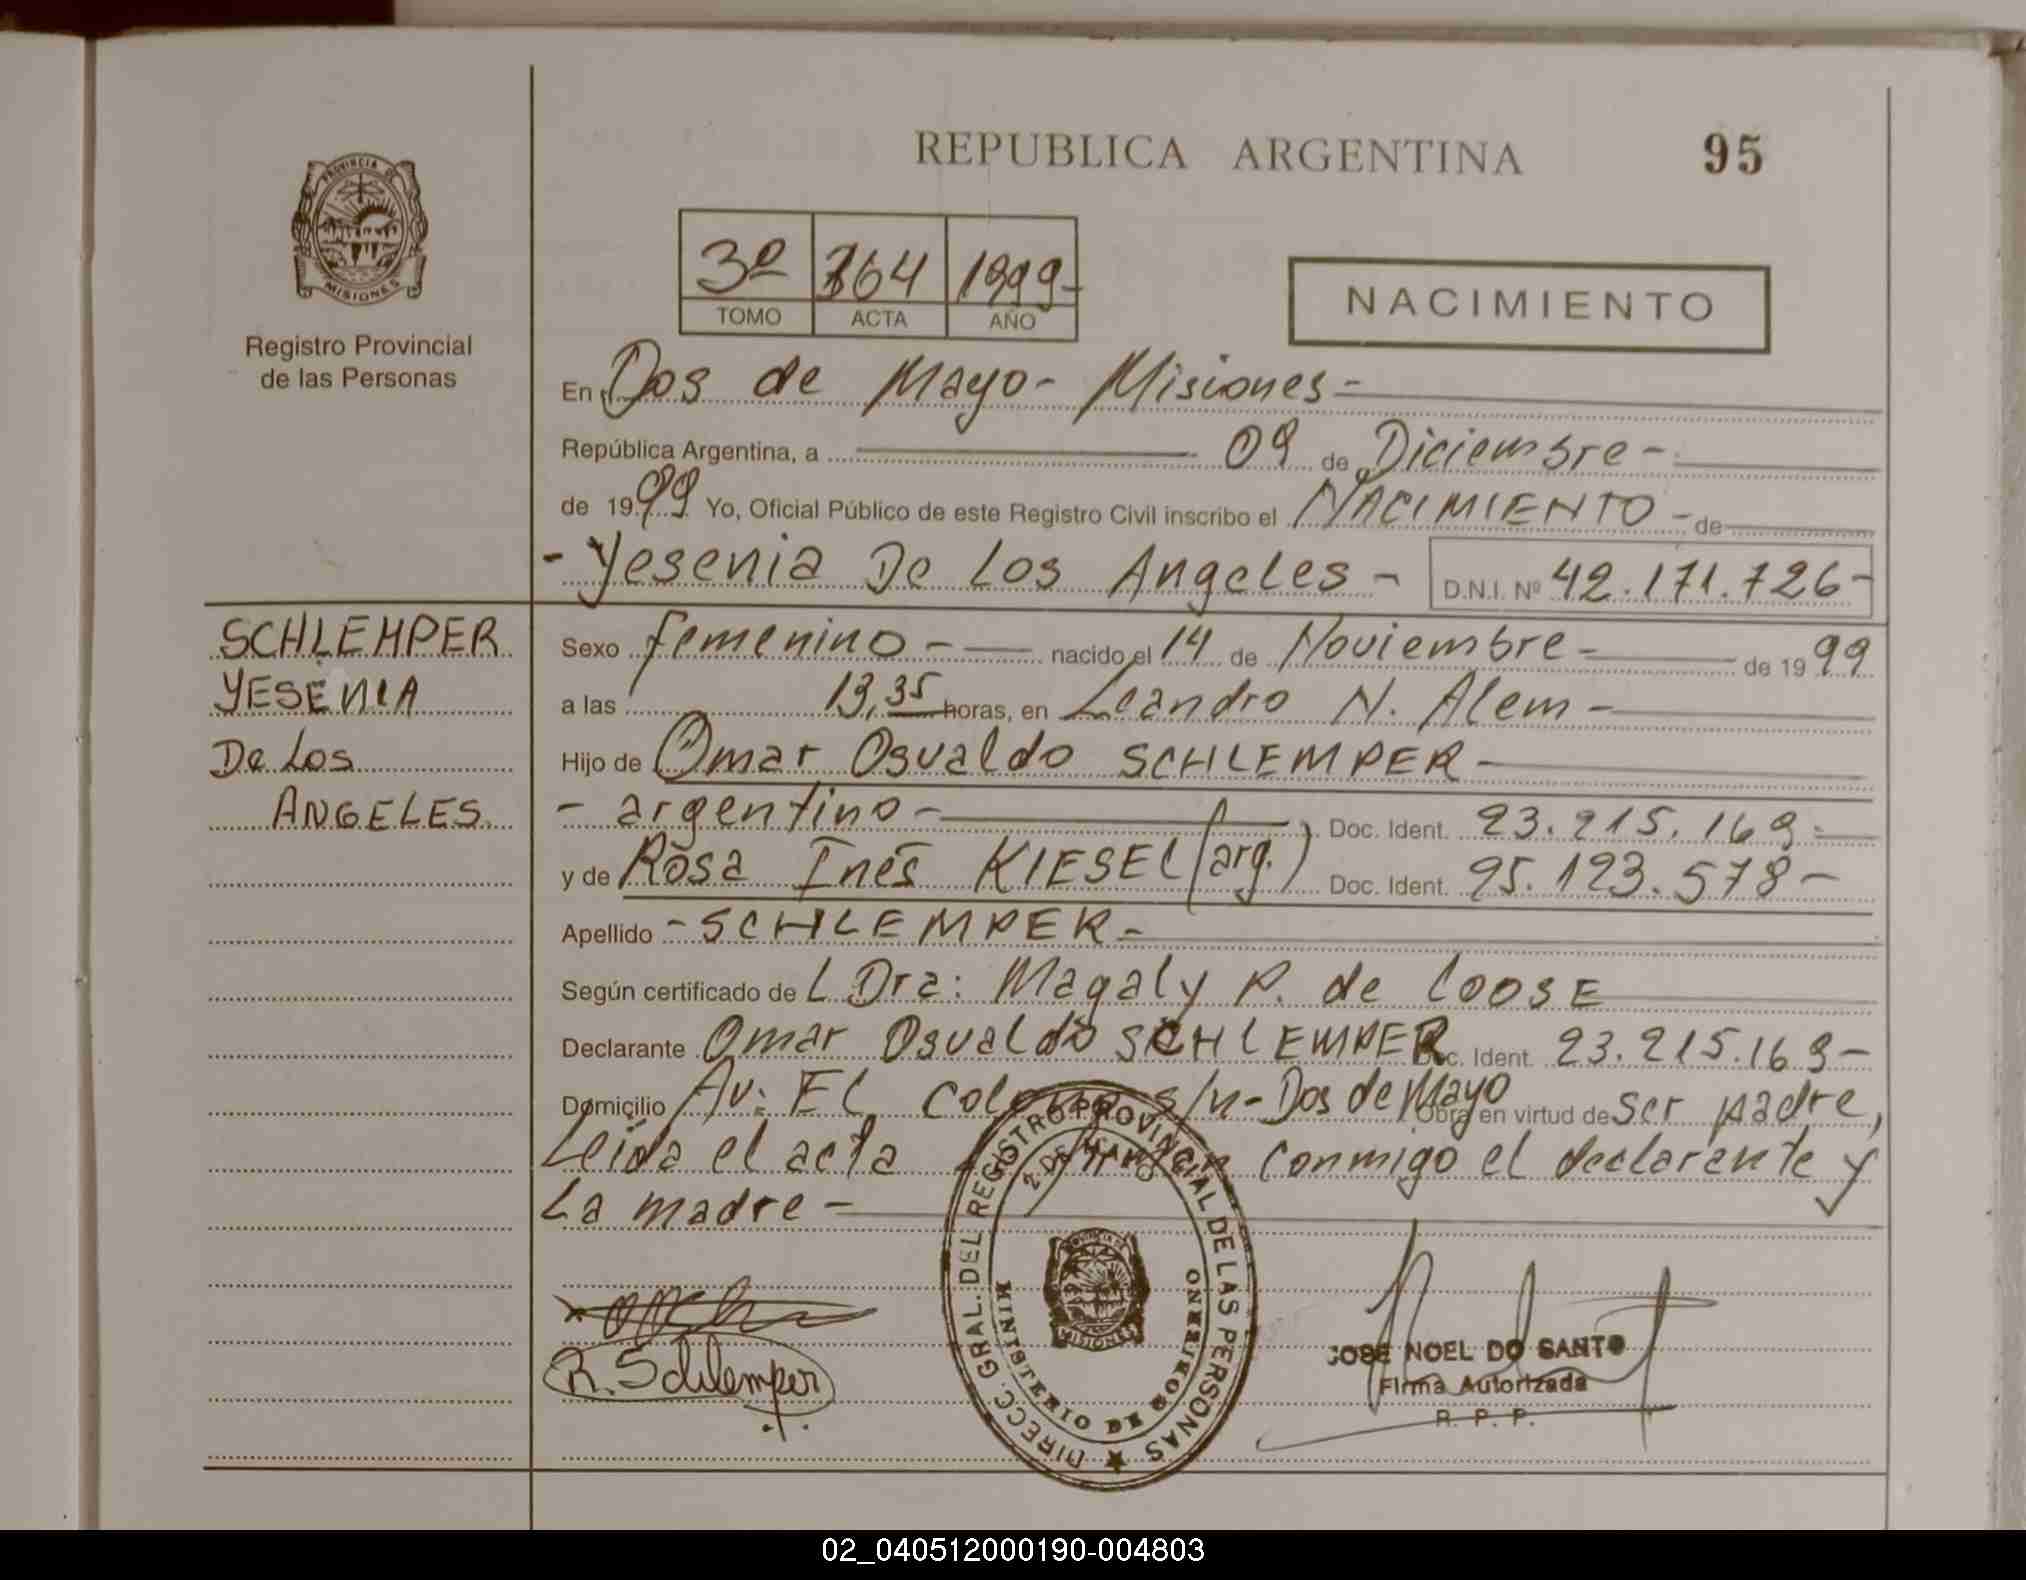 REPUBLICA ARGENTINA 95
PROVINCIA DE
MISIONES
Registro Provincial
de las Personas
3º 364 1999-
TOMO ACTA AÑO
NACIMIENTO
En Dos de Mayo- Misiones-
República Argentina, a 09 de Diciembre-
de 1999 Yo, Oficial Público de este Registro Civil inscribo el NACIMIENTO- de
- Yesenia De Los Angeles- D.N.I. Nº 42.171.726-
SCHLEMPER
YESENIA
De Los
ANGELES.
Sexo femenino- nacido el 14 de Noviembre- de 1999
a las 13,35 horas, en Leandro N. Alem-
Hijo de Omar Osvaldo SCHLEMPER-
- argentino- Doc. Ident. 23.215.169-
y de Rosa Inés KIESEL (arg.) Doc. Ident. 25.123.578-
Apellido -SCHLEMPER-
Según certificado de L Dra: Magaly P. de Loose
Declarante Omar Osvaldo SCHLEMPER Doc. Ident. 23.215.169-
Domicilio Av: EL Colono s/n- Dos de Mayo Obra en virtud de ser padre,
Leida el acta firman conmigo el declarante y
La madre-
R. Schlemper
DIRECC. GRAL. DEL REGISTRO PROVINCIAL DE LAS PERSONAS
2 DE MAYO
PROVINCIA DE
MISIONES
MINISTERIO DE GOBIERNO
JOSE NOEL DO SANTO
Firma Autorizada
R. P. P.
02_040512000190-004803